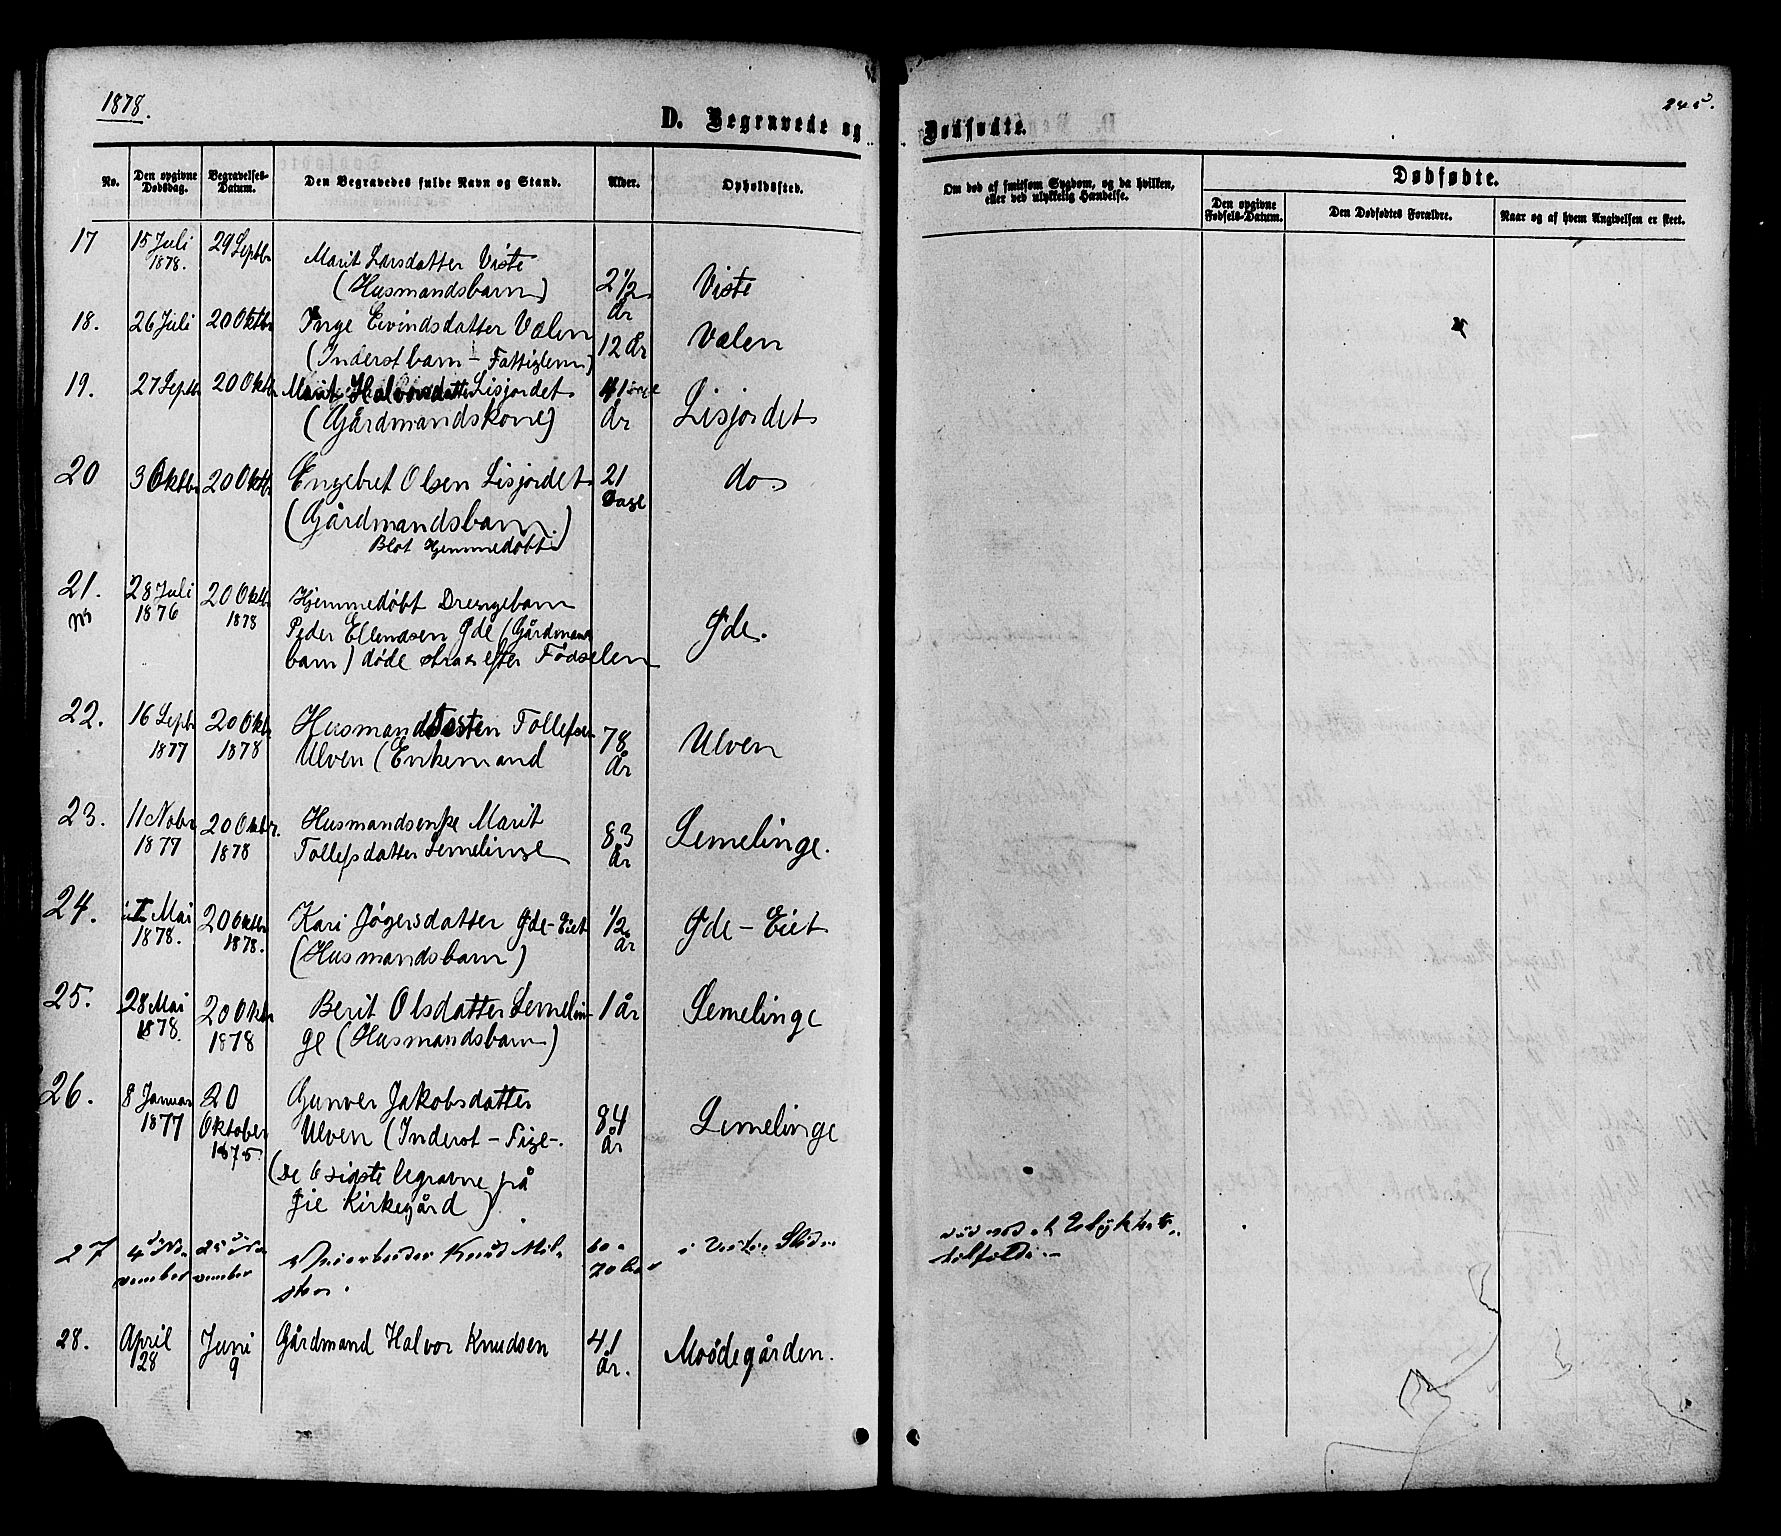 1878.
245.
D. Begravede og Dødfødte.
No.
Den opgivne Dødsdag.
Begravelses-Datum.
Den Begravedes fulde Navn og Stand.
Alder.
Opholdssted.
Om død af smitsom Sygdom, og da hvilken, eller ved ulykkelig Hændelse.
Dødfødte.
Den opgivne Fødsels-Datum.
Den Dødfødtes Forældre.
Naar og af hvem Angivelsen er skeet.
17 15 Juli 1878. 29 Septbr Marit Larsdatter Viste 2 1/2 År Viste
(Husmandsbarn)
18. 26 Juli 20 Oktbr Inge Eivindsdatter Valen 12 År Valen
(Inderstbarn - Fattiglem)
19. 27 Septbr 20 Oktbr Marit Halvorsdatter Lisjordet 41 År Lisjordet
(Gårdmandskone)
20 3 Oktbr 20 Oktbr Engebret Olsen Lisjordet 21 Dage do
(Gårdmandsbarn.)
Blot Hjemmedøbt
21. 28 Juli 1876 20 Oktbr 1878 Hjemmedøbt Drengebarn Gde.
Peder Ellendsen Gde (Gårdmands
barn) døde strax efter Fødselen
22. 16 Septbr 1877 20 Oktbr 1878 Husmand Tosten Tollefsen 78 År Ulven
Ulven (Enkemand
23. 11 Novbr 1877 20 Oktbr. 1878 Husmandsenke Marit 83 År Semelinge.
Tollefsdatter Semelinge
24. Mai 1878. 20 Oktbr 1878. Kari Jøgersdatter Gde-Eiet 1/2 år Gde-Eiet
(Husmandsbarn)
25. 28 Mai 1878. 20 Oktbr 1878 Berit Olsdatter Semelin- 1 år Semelinge
ge (Husmandsbarn)
26. 8 Januar 1877 20 Oktober 1875 Gunver Jakobsdatter 84 år Semelinge
Ulven (Inderst - Pige-.
(de 6 sidste begravne på
Gie Kirkegård)
27 4de November 25de November Veiarbeider Knud 60 - 70 Aar i Vestre Slidre død ved et Ulykkes-
tilfælde.-
28. April 28 Juni 9 Gårdmand Halvor Knudsen 41 år. Moødegården.